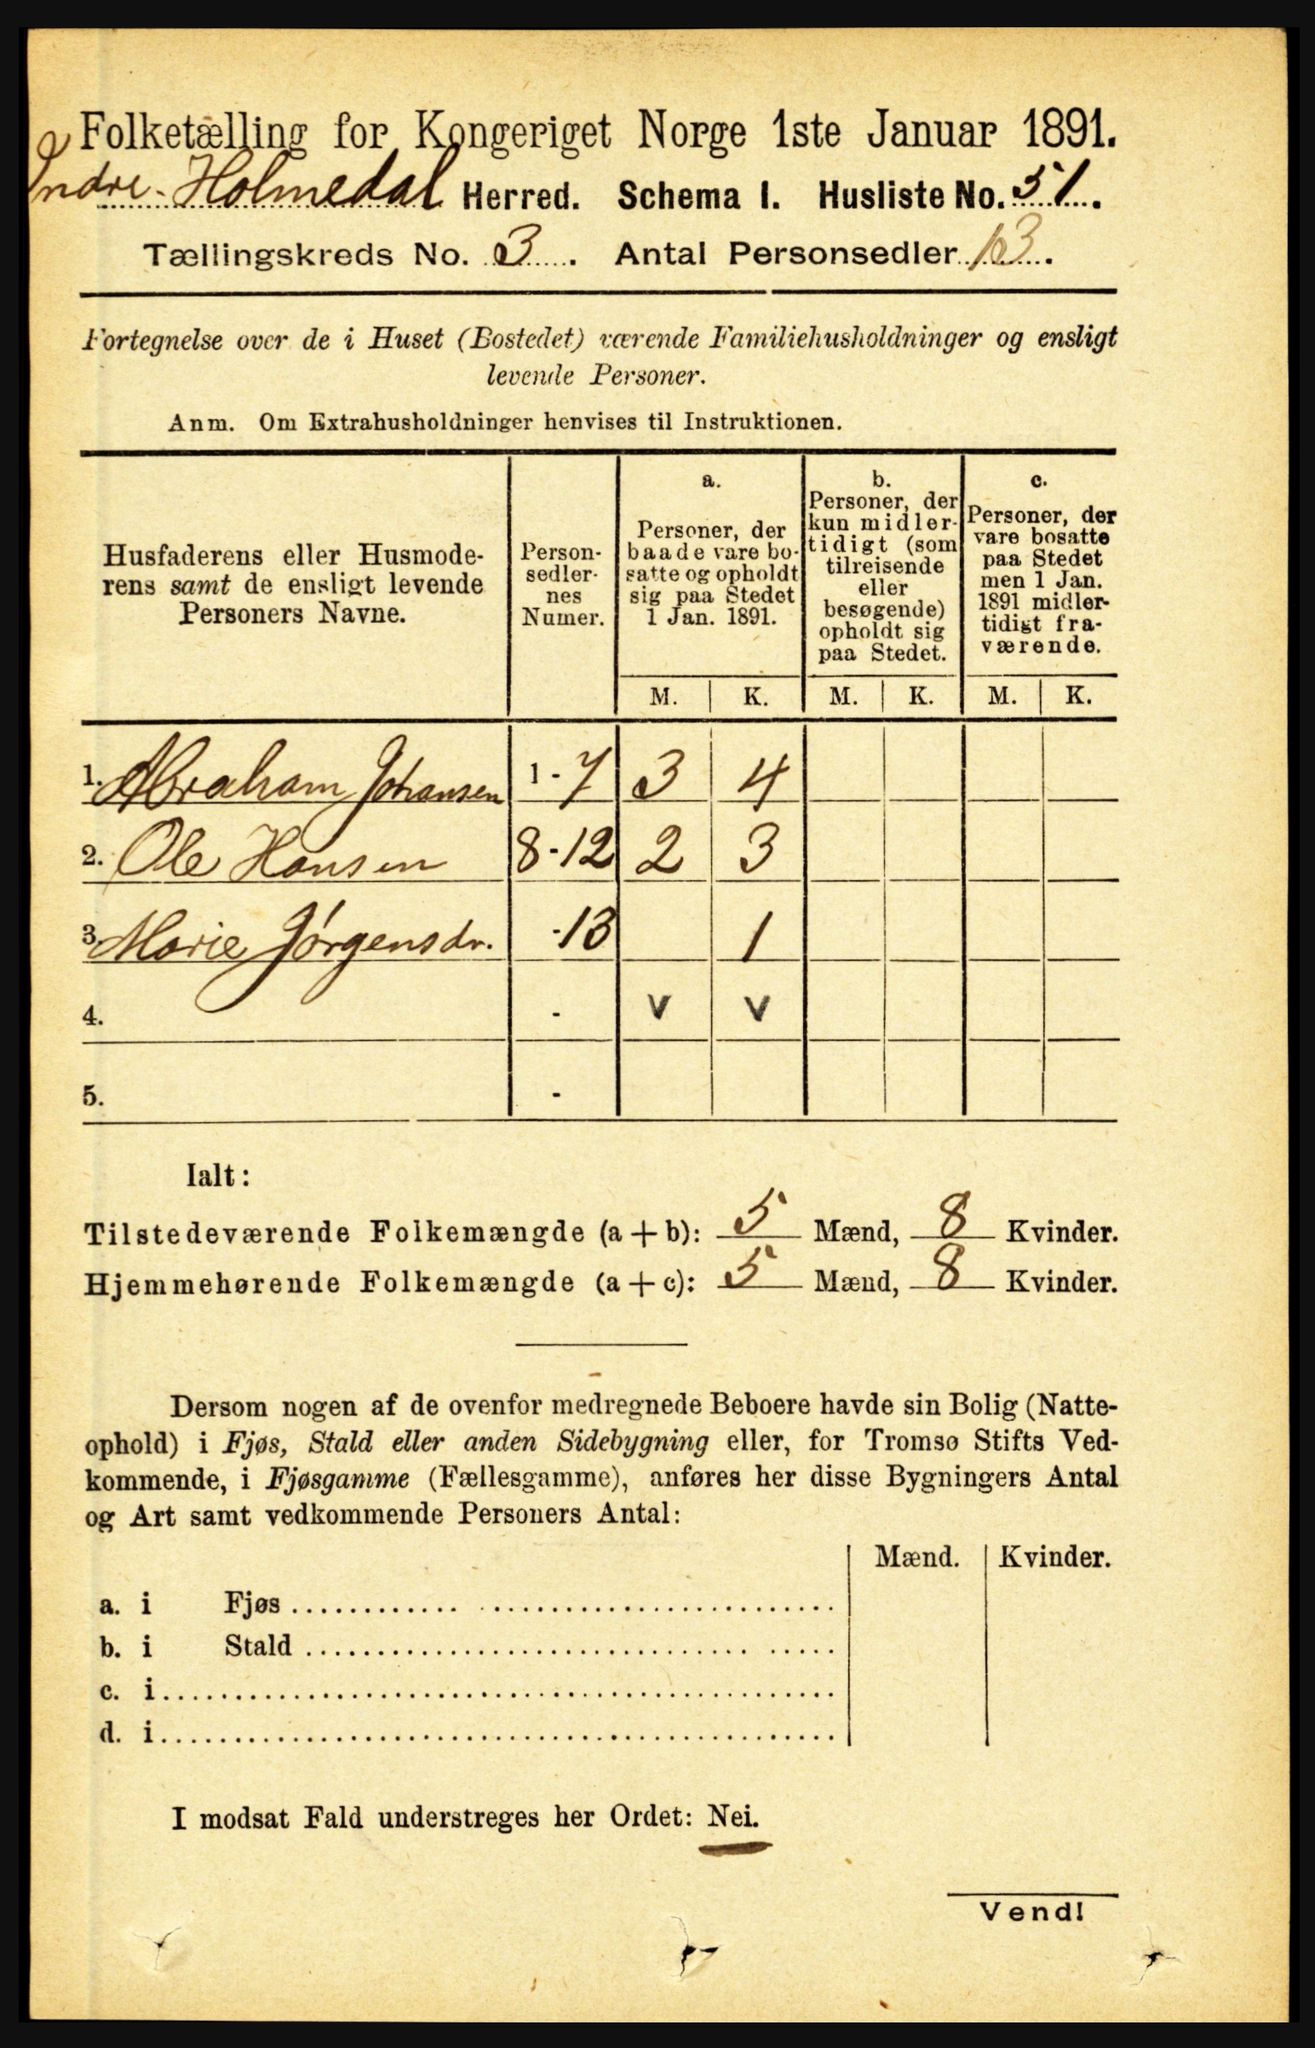 Folketælling for Kongeriget Norge 1ste Januar 1891.
Indre-Holmedal Herred. Schema I. Husliste No. 51.
Tællingskreds No. 3. Antal Personsedler 13.
Fortegnelse over de i Huset (Bostedet) værende Familiehusholdninger og ensligt
levende Personer.
Anm. Om Extrahusholdninger henvises til Instruktionen.
Husfaderens eller Husmode-
rens samt de ensligt levende
Personers Navne.
Person-
sedler-
nes
Numer.
a.
Personer, der
baade vare bo-
satte og opholdt
sig paa Stedet
1 Jan. 1891.
b.
Personer, der
kun midler-
tidigt (som
tilreisende
eller
besøgende)
opholdt sig
paa Stedet.
c.
Personer, der
vare bosatte
paa Stedet
men 1 Jan.
1891 midler-
tidigt fra-
værende.
M. K. M. K. M. K.
1. Abraham Johansen 1 - 7 3 4
2. Ole Hansen 8 - 12 2 3
3. Marie Jørgensdr. - 13 1
4. - v v
5. -
Ialt:
Tilstedeværende Folkemængde (a + b): 5 Mænd, 8 Kvinder.
Hjemmehørende Folkemængde (a + c): 5 Mænd, 8 Kvinder.
Dersom nogen af de ovenfor medregnede Beboere havde sin Bolig (Natte-
ophold) i Fjøs, Stald eller anden Sidebygning eller, for Tromsø Stifts Ved-
kommende, i Fjøsgamme (Fællesgamme), anføres her disse Bygningers Antal
og Art samt vedkommende Personers Antal:
Mænd. Kvinder.
a. i Fjøs
b. i Stald
c. i
d. i
I modsat Fald understreges her Ordet: Nei.
Vend!